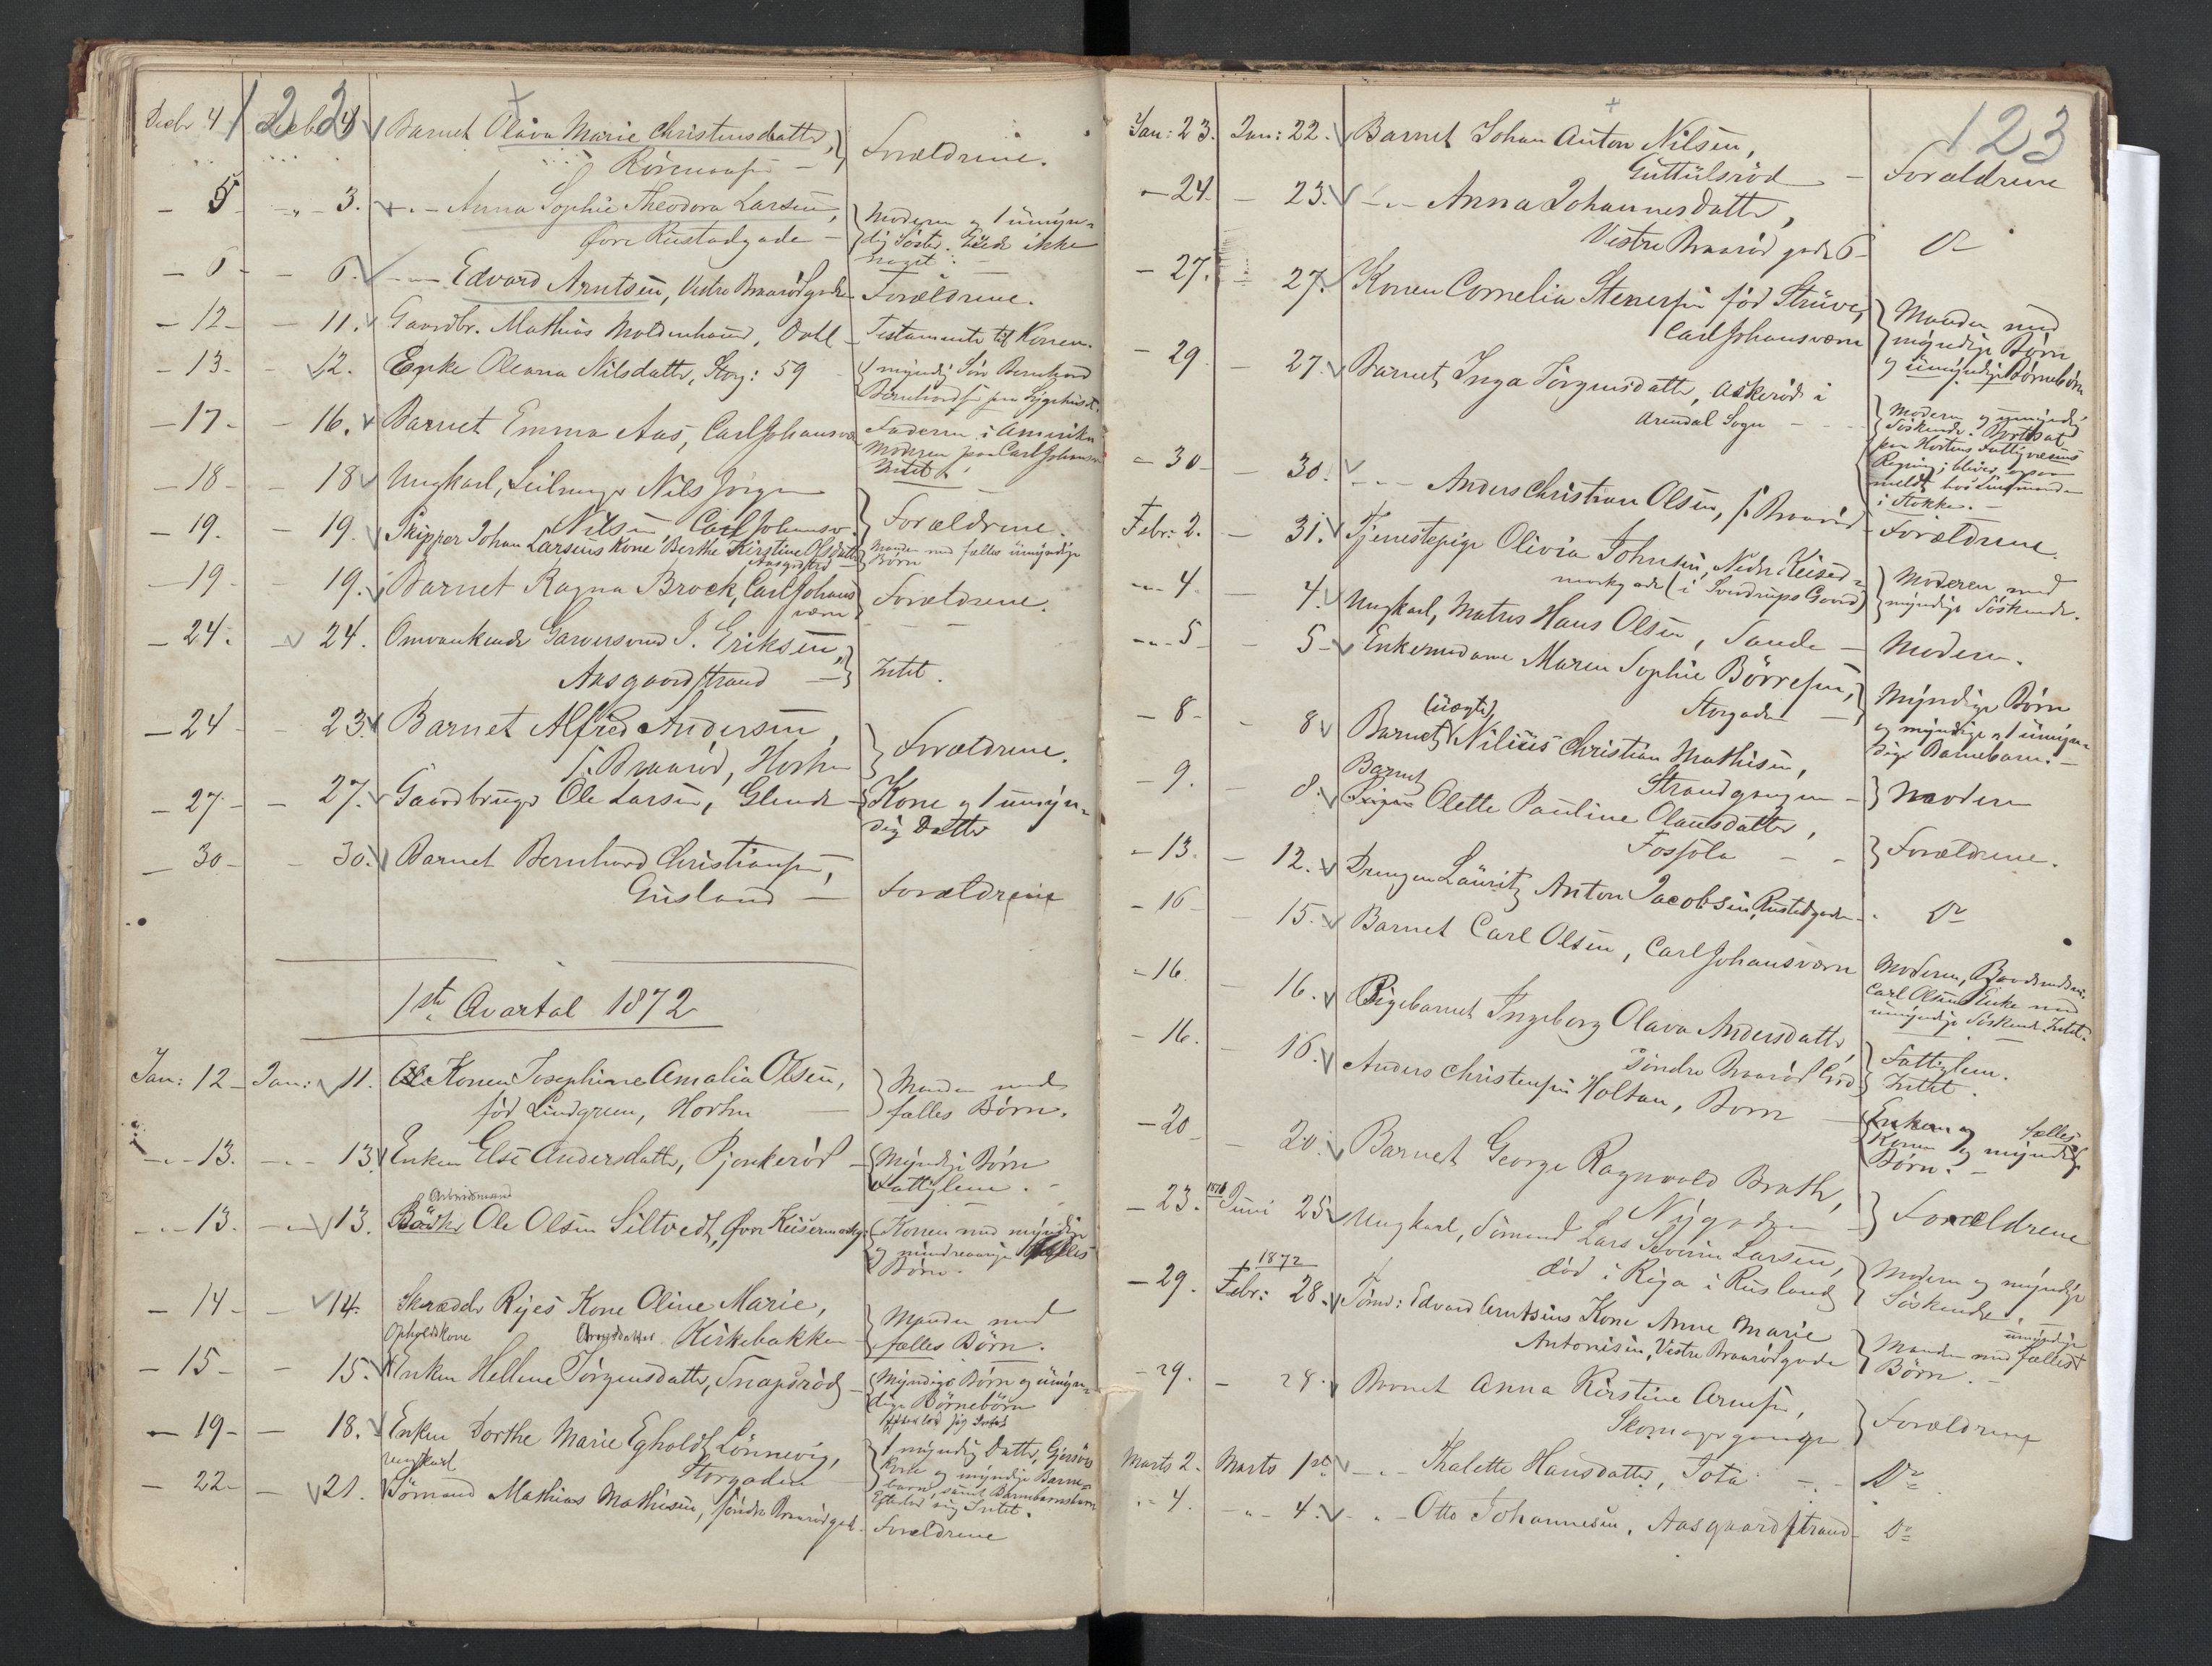 122
Decbr 4 Decbr 4 Barnet Olava Marie Christensdatter,
Rørenaasen - Forældrene.
- 5 - " - 3. - " - Anna Sophie Theodora Larsen,
Øvre Rustadgade - Moderen og 1 umyn-
dig Søster. Eiede ikke
noget. -
- 6 - - 6. - " - Edvard Arntsen, Vestre Braarødgade - Forældrene.
- 12 - - 11. Gaardbr. Mathias Moldenhauer, Dahl - Testamente til Konen.
- 13 - - 12. Enke Oleana Nilsdatter, Storg: 59 - 1 myndig Søn Bernhard
Bernhardsen paa Sygehuset.
- 17 - - 16. Barnet Emma Aas, CarlJohansværn Faderen i Amerika
Moderen paa CarlJohansværn
Intet.
- 18 - - 18 Ungkarl, Seilmager Nils Jørgen
Nilsen CarlJohansv. Forældrene.
- 19. - 19. Skipper Johan Larsens Kone Berthe Kirstine Olsdatter
Aasgrstrd - Manden med fælles umyndige
Børn
- 19 - 19. Barnet Ragna Brock, CarlJohans
værn Forældrene.
- 24. - 24. Omvankende Garversvend J. Eriksen,
Aasgaardstrand - Intet.
- 24 - 23. Barnet Alfred Andersen,
S. Braarød, Horten Forældrene.
- 27 - - 27. Gaardbruger Ole Larsen, Glende - Kone og 1 umyn-
dig Datter
- 30 - - 30. Barnet Bernhard Christiansen,
Grisland - Forældrene
1ste Qvartal 1872
Jan: 12 - Jan: 11. Konen Josephine Amalia Olsen,
fød Lindgren, Horten - Manden med
fælles Børn.
- " - 13. - " - 13. Enken Else Andersdatter, Pjonkerød - Myndige Børn
Fattiglem. -
Arbeidsmand
- " - 13. - " - 13. Bødker Ole Olsen Siltvedt, Øvre Keisermarkg: Konen med myndige
og mindreaarige fælles
Børn.
- 14 - - 14. Skrædder Rijes Kone Oline Marie,
Kirkebakken - Manden med
fælles Børn.
Opholdskone
- 15 - - 15. Enken Hellene Jørgensdatter, Snapsrød - Myndige Børn og umyn-
dige Børnebørn
Efterlod sig Intet
- 19 - - 18. Enken Dorthe Marie Egholdt Lønnevig,
Storgaden 1 myndig Datter,
Kone og myndige Barne-
barn, samt Barnebarnsbarn
Efterlod sig Intet.
ungkarl
- 22 - - 21. Sømand Mathias Mathisen, søndre Braarødgad. Forældrene
123
Jan: 23. Jan: 22. Barnet Johan Anton Nilsen,
Guttulsrød - Forældrene
- 24. - 23. - " - Anna Johannesdatter,
Vestre Braarød gade 6 - Do
- 27. - 27. Konen Cornelia Stenersen fød Struve,
CarlJohansværn Manden med
myndige Børn
og umyndige Børnebørn
- 29 - 27. Barnet Inga Jørgensdatter, Askerød i
Arendal Sogn - - Moderen og umyndige
Søskende. Bortsat
paa Hortens Fattigvæsens
Regning; bliver ogsaa
meldt hos Lensmanden
i Stokke. -
- 30 - - 30. - " - Anders Christian Olsen, S. Braarød - Forældrene.
Febr: 2. - 31. Tjenestepige Olivia Johnsen, Nedre Keiser-
markgade (i Svendrups Gaard) Moderen med
myndige Søskende.
- " - 4. - 4. Ungkarl, Matros Hans Olsen, Sande - Moderen.
- " - 5 - 5 - Enkemadame Maren Sophie Børresen,
Storgaden - Myndige Børn
og myndige og 1 umyn-
dige Barnebarn. -
- 8 - - 8 Barnet (uægte) Nilius Christian Mathisen,
Strandgangen - Moderen
- 9. - 8. Barnet
Pigen Olette Pauline Olausdatter,
Fossola - - Forældrene.
- 13. - 12. Drengen Lauritz Anton Jacobsen, Rustadgaden - Do
- 16 - - 15. Barnet Carl Olsen, CarlJohansværn Moderen,
Carl Olsens Enke med
umyndige Søskende. Intet.
- 16. - 16. Pigebarnet Ingeborg Olava Andersdatter,
Søndre Braarød Fattiglem.
Intet.
- 16. - 16. Anders Christensen Holtan, Borre - Enken og fælles
Konen og myndige
Børn. -
- 20 - 20. Barnet George Ragnvald Brath,
Nygaden - Forældrene
- 23. 1871 Juni 25. Ungkarl, Sømand Lars Severin Larsen,
død i Riga i Rusland Moderen og myndige
Søskende.
1872
- 29. Febr: 28. Tømd: Edvard Arntsens Kone Anne Marie
Antonisen, Vestre Braarødgade Manden med fælles umyndige
Børn. -
- 29. - 28. Barnet Anna Kirstine Arnesen,
Skomagergangen Forældrene
Marts 2. Marts 1ste - " - Thalette Hansdatter, Tota - " - Do
" - 4. - " - 4. - " - Otto Johannesen, Aasgaardstrand - Do